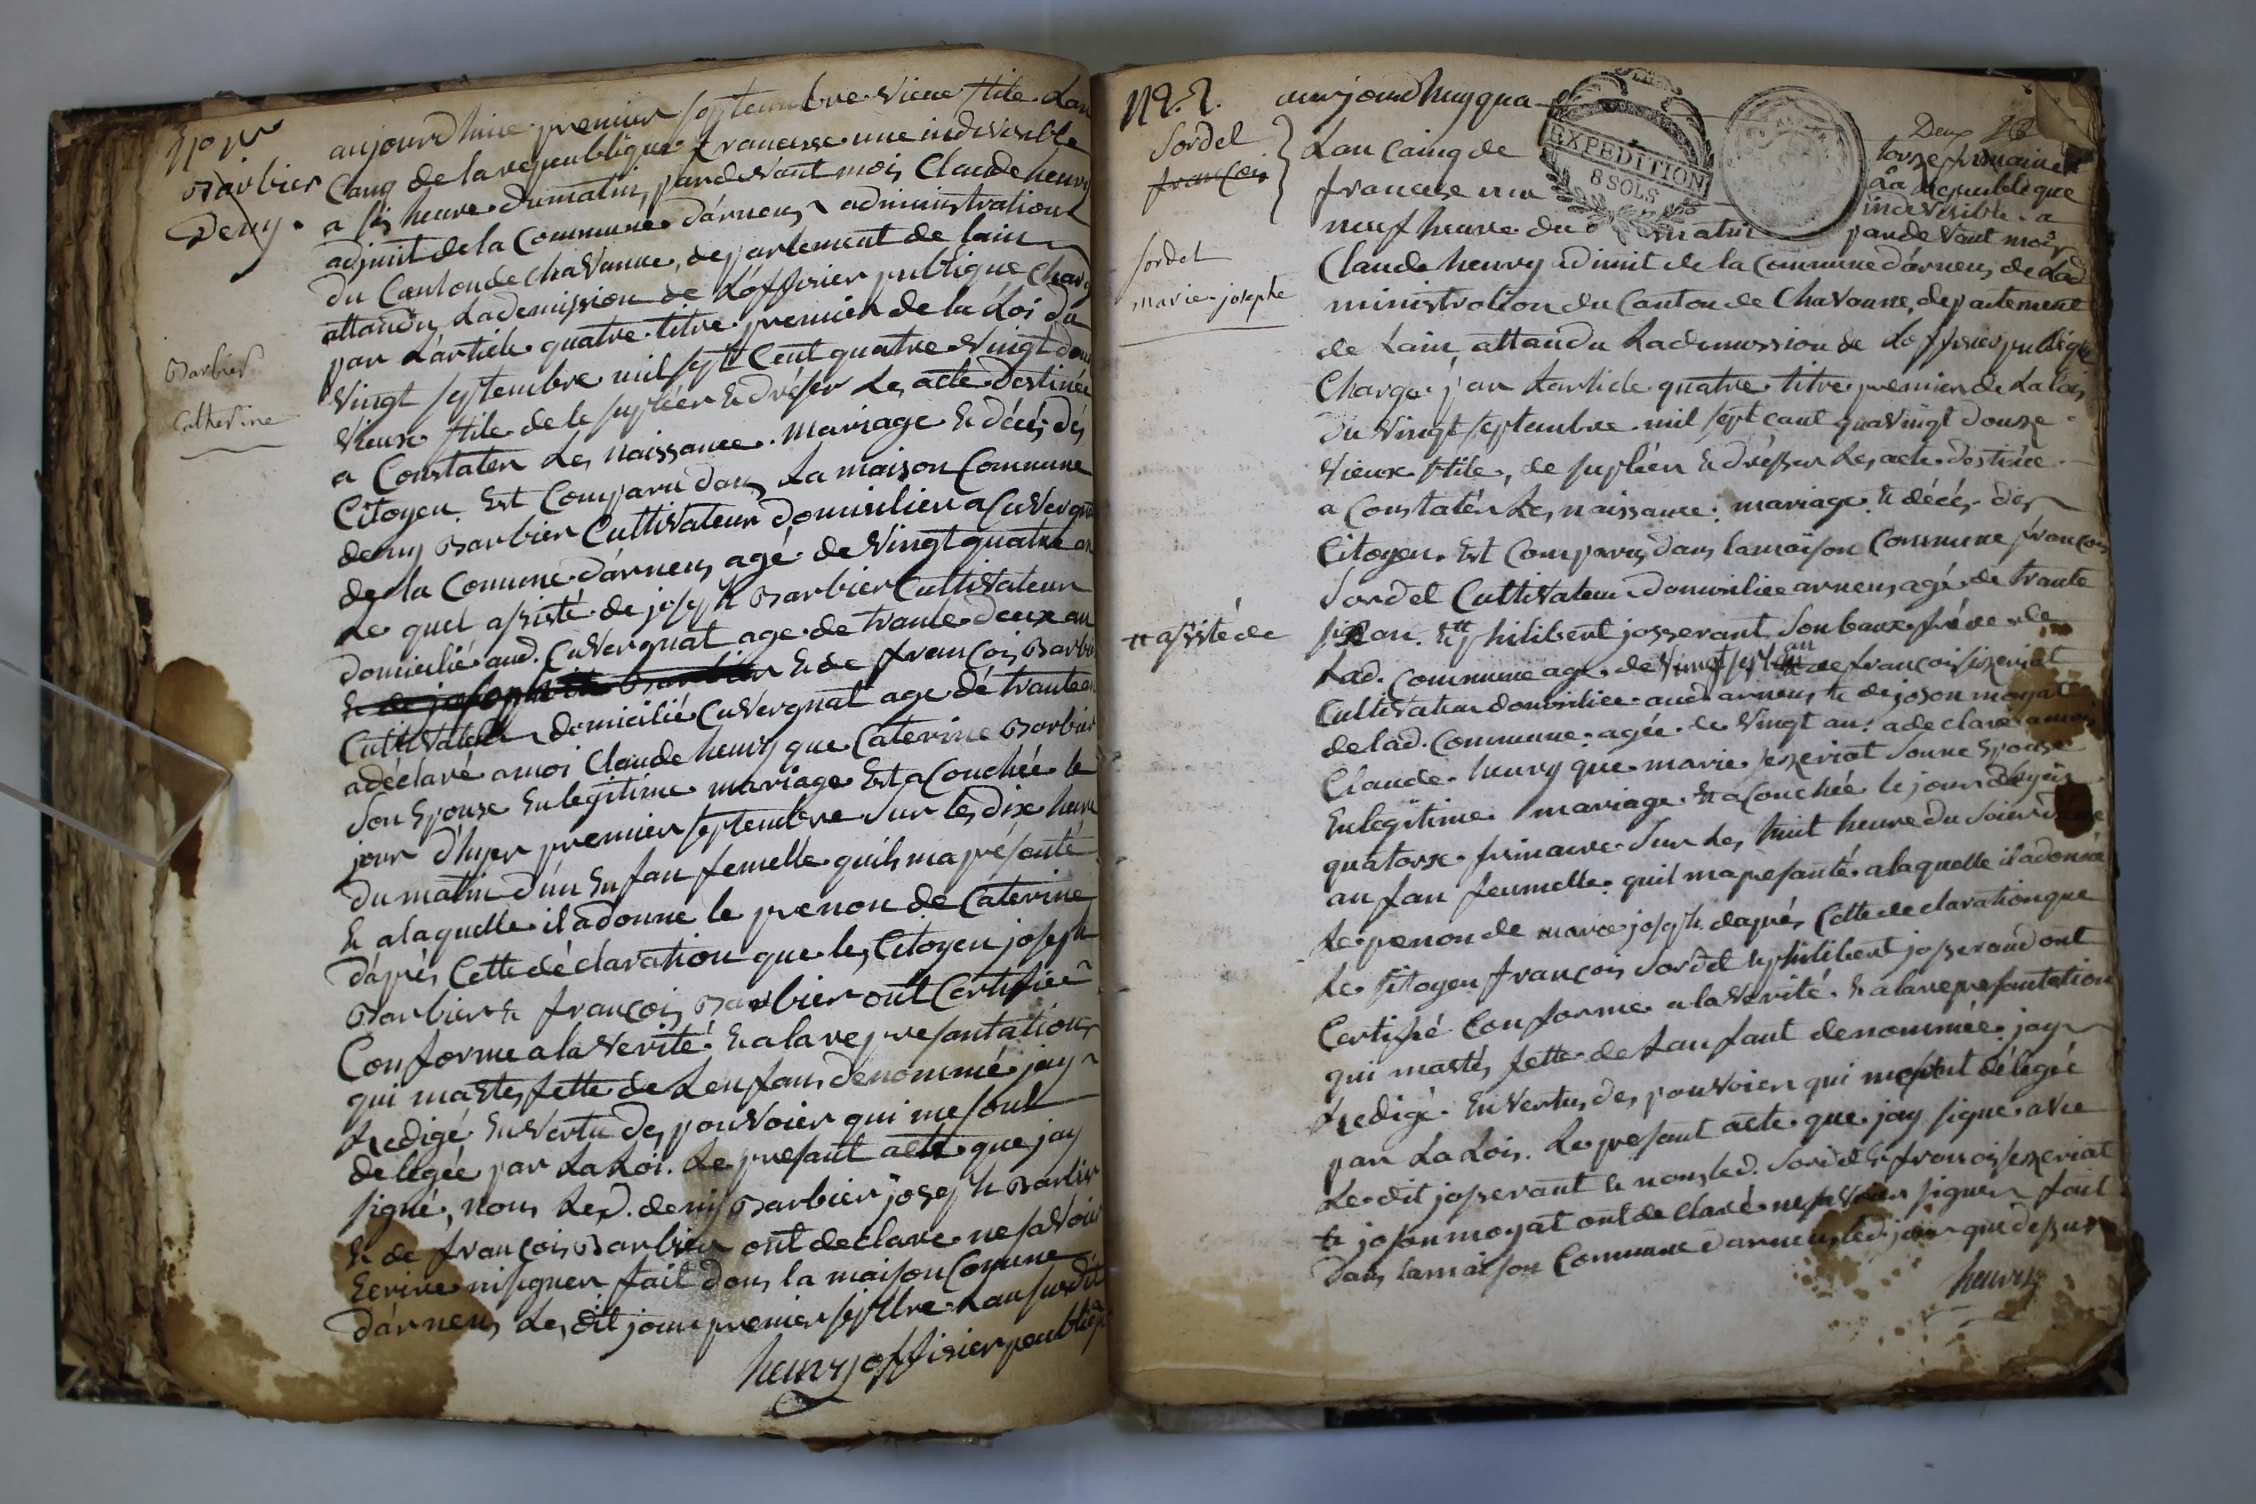 Barbier
Deny.
Barbier
Catherine
aujourdhuie premier septembre Vieue stile. Lan
Cainq de la republique francaise une indivisible
a six heure dumatin, pardevant moi Claude henry
adjoint de la Commune d'arnens administration
du Canton de chavanne, departement de lain
attandu Lademission de L'offisier publique charg
par L'article quatre titre premier de la Loi du
Vingt septembre mil sept Cent quatre Vingt douse
Vieux stile de le supléer & dréser Les acte destinée
a Constater Les naissance. mariage & décés dés
Citoyen. Est Comparu dans La maison Commune
deny Barbier Cultivateur domisilier a Cuvergnat
de la Comune d'arnens agé de Vingt quatre an
Le quel assisté de joseph Barbier Cultivateur
domicilié aud. Cuvergnat age de trante deux an
& de françois Barbier
Cultivateur domicilié Cuvergnat age dé trante an
adéclaré amoi Claude henry que Caterine Barbier
Son Epouse En legitime mariage Est aCouchée le
jour d'hyer premier septembre Sur les dix heure
du matin d'un Enfan femelle quils ma présanté
& alaquelle il adonne le prenon de Caterine
d'aprés Cette déclaration que les Citoyen joseph
Barbier & françois Barbier ont Certifiée
Conforme ala Verité. & ala represantation
qui maestes fette de Lenfans denommé jay
Redigé En Vertu des pouvoier qui me sont
delegée par La Loi. Le presant acte que jay
signé, nous Led. deny Barbier joseph Barbier
& de françois Barbier ont declare ne savoir
Ecrire ni signer fait dans la maison Comune
d'arnens Les dit jour premier septbre Lan susdit
henry offisier publiq
N.º 2.
Sordel
françois
Sordel
marie-josephe
tt assisté de
aurjourdhuy qua
Deux
torse frimaire
Lan Cainq de
La Republique
francaise une
indivisible. a
neuf heure du matin
pardevant moi
EXPEDITION
8 SOLS
Claude henry adjoint de la Commune d'arnens de Lad
ministration du Canton de Chavanne, departement
de Lain attandu Lademission de Loffisier publique
Chargé par Larticle quatre titre premier de La loi
du Vingt septembre mil sept cant quaVingt douse
Vieux stile, de supléer & drésser Les acte destinée
a Constatér Les naissance: mariage & décés dés
Citoyen. Est Comparus dans lamaison Commune françois
Sordel Cultivateur domisiliee arnens agé de trante
six an. & tt philibert josserant Son beaux frére de
Lad. Commune age de Vingt sept an & de françois sizeriat
Cultivateur domisiliee aud arnens & de joson moyat
de lad. Commune. agée de Vingt an. a declaré a moi
Claude henry que marie sezeriat Sonne Epouse
En legitime mariage Est aCouchée le jours dhyér
quatorse frimaire Sur Les huit heure du Soier d'une
an fan feumelle quil mapresanté alaquelle il adonnée
Le prenon de marie joseph daprés Cette declaration que
Le sitoyen françois Sordel & philibert josserand ont
Certifié Conforme ala Verité. & ala represantation
qui mastés fette de Lanfant denommée jay
Redigé En Vertus des pouvoier qui mesont délégée
par La Lois. Le presant acte que jay signe avec
Le dit josserant & nous led. Sordel & françois sezeriat
& joson moyat ont declaré ne savoier signer fait
dans lamaison Commune darnens led. jour que dessus
henry